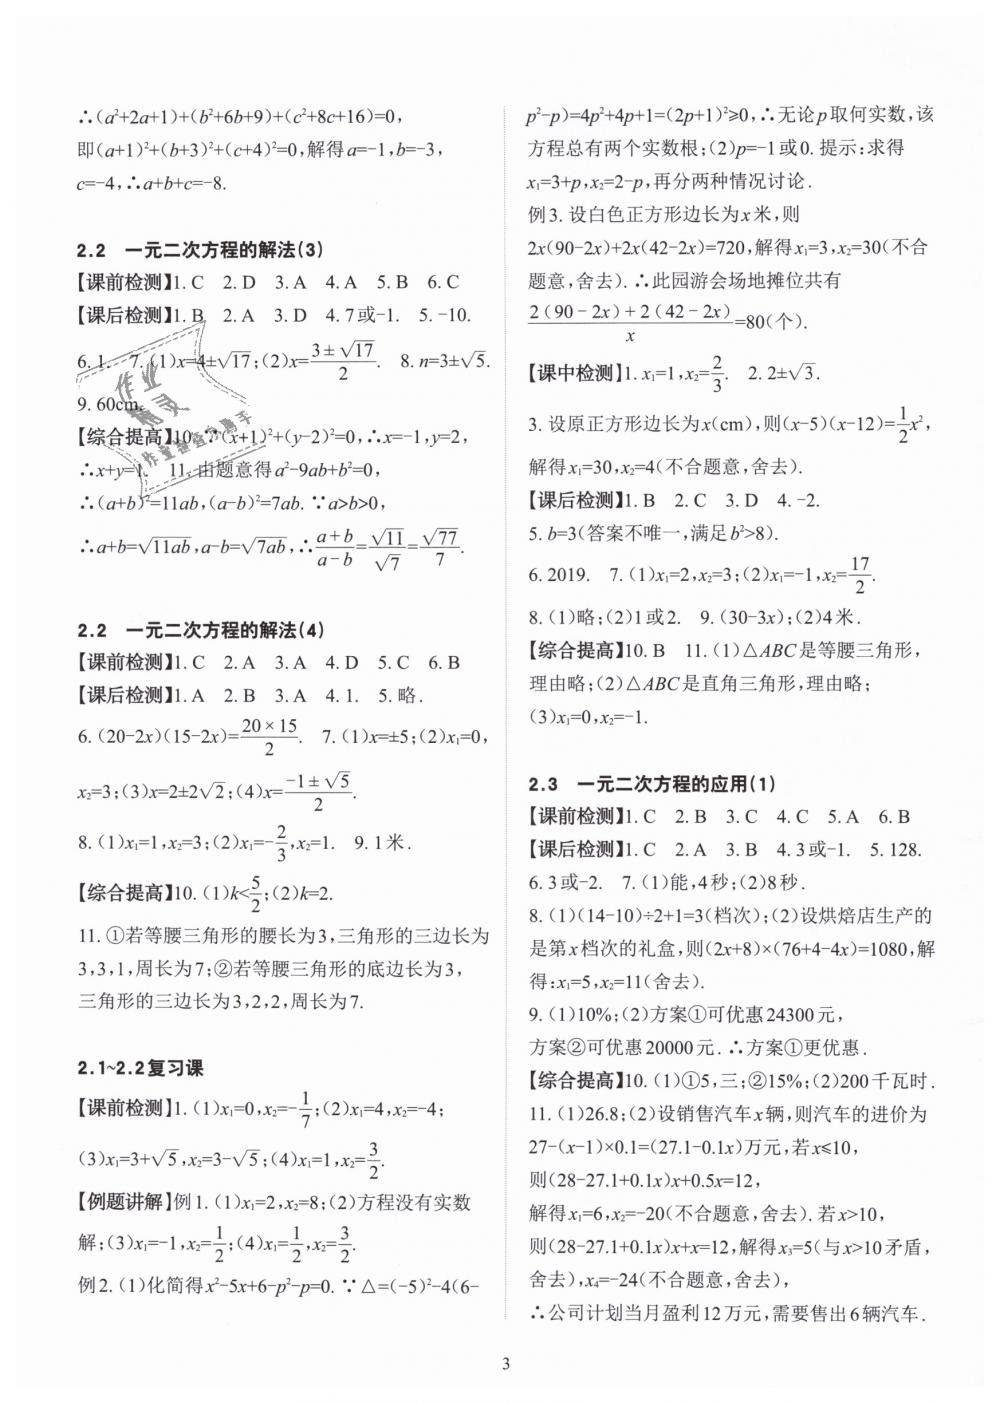 ∴(a²+2a+1)+(b²+6b+9)+(c²+8c+16)=0,
即(a+1)²+(b+3)²+(c+4)²=0,解得a=-1,b=-3,
c=-4,∴a+b+c=-8.
2.2 一元二次方程的解法(3)
【课前检测】1. C 2. D 3. A 4. A 5. B 6. C
【课后检测】1. B 2. A 3. D 4. 7或-1. 5. -10.
6. 1. 7. (1)x=4±√17;(2)x=(3±√17)/2. 8. n=3±√5.
9. 60cm.
【综合提高】10. ∵(x+1)²+(y-2)²=0,∴x=-1,y=2,
∴x+y=1. 11. 由题意得a²-9ab+b²=0,
∴(a+b)²=11ab,(a-b)²=7ab. ∵a>b>0,
∴a+b=√11ab,a-b=√7ab,∴(a+b)/(a-b)=√11/√7=√77/7.
2.2 一元二次方程的解法(4)
【课前检测】1. C 2. A 3. A 4. D 5. C 6. B
【课后检测】1. A 2. B 3. A 4. 1. 5. 略.
6. (20-2x)(15-2x)=(20×15)/2. 7. (1)x=±5;(2)x₁=0,
x₂=3;(3)x=2±2√2;(4)x=(-1±√5)/2.
8. (1)x₁=1,x₂=3;(2)x₁=-2/3,x₂=1. 9. 1米.
【综合提高】10. (1)k<5/2;(2)k=2.
11. ①若等腰三角形的腰长为3,三角形的三边长为
3,3,1,周长为7;②若等腰三角形的底边长为3,
三角形的三边长为3,2,2,周长为7.
2.1~2.2复习课
【课前检测】1. (1)x₁=0,x₂=-1/7;(2)x₁=4,x₂=-4;
(3)x₁=3+√5,x₂=3-√5;(4)x₁=1,x₂=3/2.
【例题讲解】例1. (1)x₁=2,x₂=8;(2)方程没有实数
解;(3)x₁=-1,x₂=1/2;(4)x₁=1/2,x₂=3/2.
例2. (1)化简得x²-5x+6-p²-p=0. ∵△=(-5)²-4(6-
p²-p)=4p²+4p+1=(2p+1)²≥0,∴无论p取何实数,该
方程总有两个实数根;(2)p=-1或0. 提示:求得
x₁=3+p,x₂=2-p,再分两种情况讨论.
例3. 设白色正方形边长为x米,则
2x(90-2x)+2x(42-2x)=720,解得x₁=3,x₂=30(不合
题意,舍去). ∴此园游会场地摊位共有
(2(90-2x)+2(42-2x))/x=80(个).
【课中检测】1. x₁=1,x₂=2/3. 2. 2±√3.
3. 设原正方形边长为x(cm),则(x-5)(x-12)=1/2x²,
解得x₁=30,x₂=4(不合题意,舍去).
【课后检测】1. B 2. C 3. D 4. -2.
5. b=3(答案不唯一,满足b²>8).
6. 2019. 7. (1)x₁=2,x₂=3;(2)x₁=-1,x₂=17/2.
8. (1)略;(2)1或2. 9. (30-3x);(2)4米.
【综合提高】10. B 11. (1)△ABC是等腰三角形,
理由略;(2)△ABC是直角三角形,理由略;
(3)x₁=0,x₂=-1.
2.3 一元二次方程的应用(1)
【课前检测】1. C 2. B 3. C 4. C 5. A 6. B
【课后检测】1. C 2. A 3. B 4. 3或-1. 5. 128.
6. 3或-2. 7. (1)能,4秒;(2)8秒.
8. (1)(14-10)÷2+1=3(档次);(2)设烘焙店生产的
是第x档次的礼盒,则(2x+8)×(76+4-4x)=1080,解
得:x₁=5,x₂=11(舍去).
9. (1)10%;(2)方案①可优惠24300元,
方案②可优惠20000元. ∴方案①更优惠.
【综合提高】10. (1)①5,三;②15%;(2)200千瓦时.
11. (1)26.8;(2)设销售汽车x辆,则汽车的进价为
27-(x-1)×0.1=(27.1-0.1x)万元,若x≤10,
则(28-27.1+0.1x)x+0.5x=12,
解得x₁=6,x₂=-20(不合题意,舍去). 若x>10,
则(28-27.1+0.1x)x+x=12,解得x₃=5(与x>10矛盾,
舍去),x₄=-24(不合题意,舍去),
∴公司计划当月盈利12万元,需要售出6辆汽车.
3